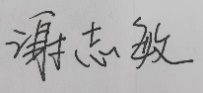 谢志敏